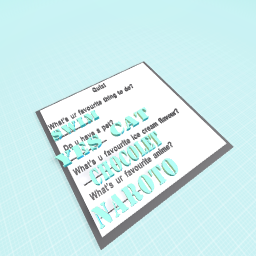 Quizt
What's ur favourite thing to do?
SWIM
Do u have a pet?
YES CAT
What's u favourite ice cream flavour?
CHOCOLET
What's ur favourite anime?
NAROTO